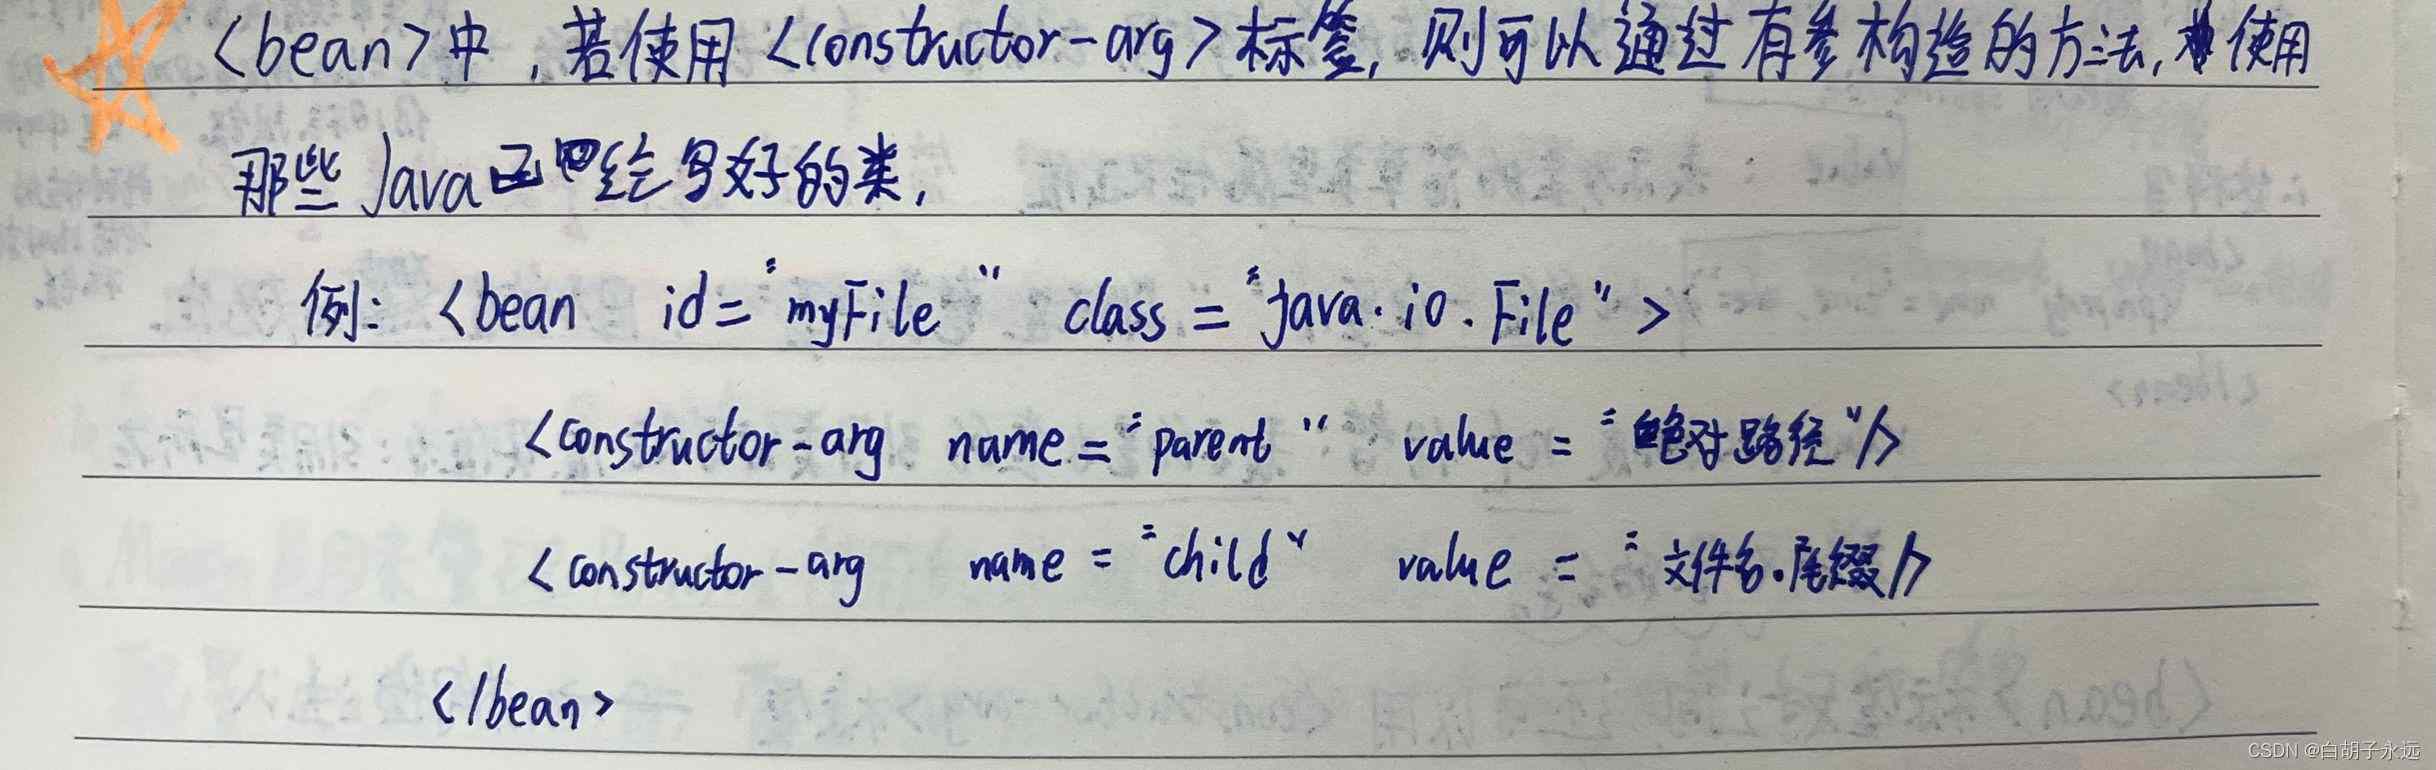 <bean>中，若使用<constructor-arg>标签，则可以通过有参构造的方法，使用
那些Java已经写好的类，
例：<bean id="myFile" class="java.io.File">
<constructor-arg name="parent" value="绝对路径"/>
<constructor-arg name="child" value="文件名.尾缀/>
</bean>
CSDN @白胡子永远